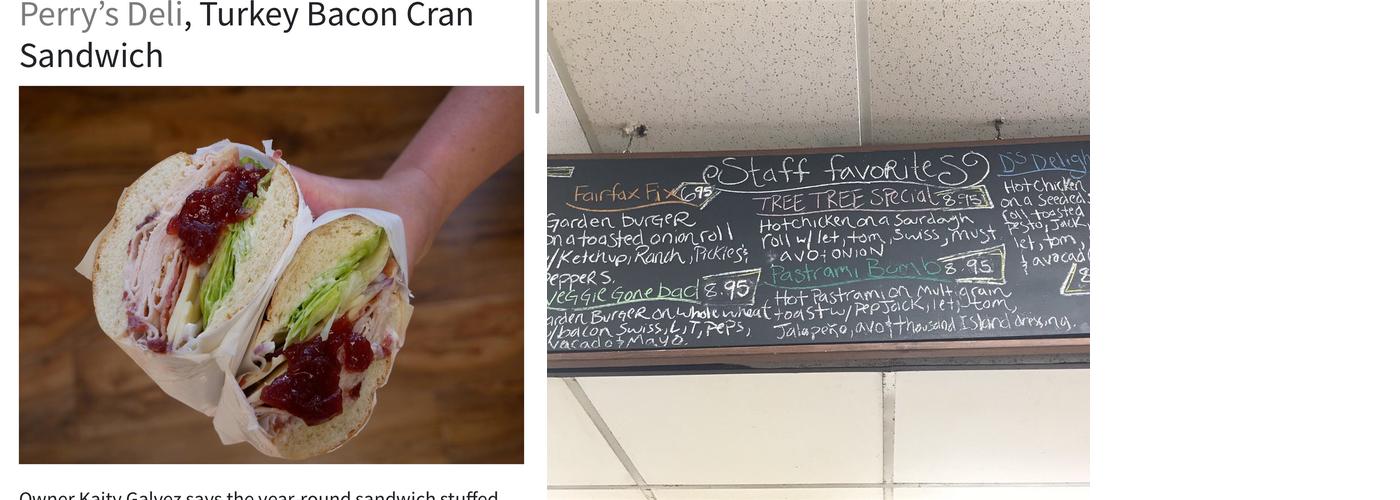 Perry's Deli, Turkey Bacon Cran
Sandwich
Owner Kaity Galvez says the year-round sandwich stuffed
Staff favorites
Fairfax Fix 6.95
Garden BURGER
on a toasted onion roll
w/Ketchup, Ranch, Pickles,
PEPPERS.
VEGGIE Gone bad 8.95
Garden BURGER on whole wheat
w/bacon, Swiss, L,T, PePs,
avocado + Mayo.
TREE TREE SPecial 8.95
Hot chicken on a Sourdough
roll w/ let, tom, Swiss, must
, avo + ONION
Pastrami Bomb 8.95
Hot Pastrami on Multi grain
toast w/ PepJack, let, tom,
Jalapeño, avo + thousand Island dressing.
D'S Deligh
Hot Chicken
on a Seeded
roll toasted
Pesto, Jack,
let, tom,
+ avocad
8